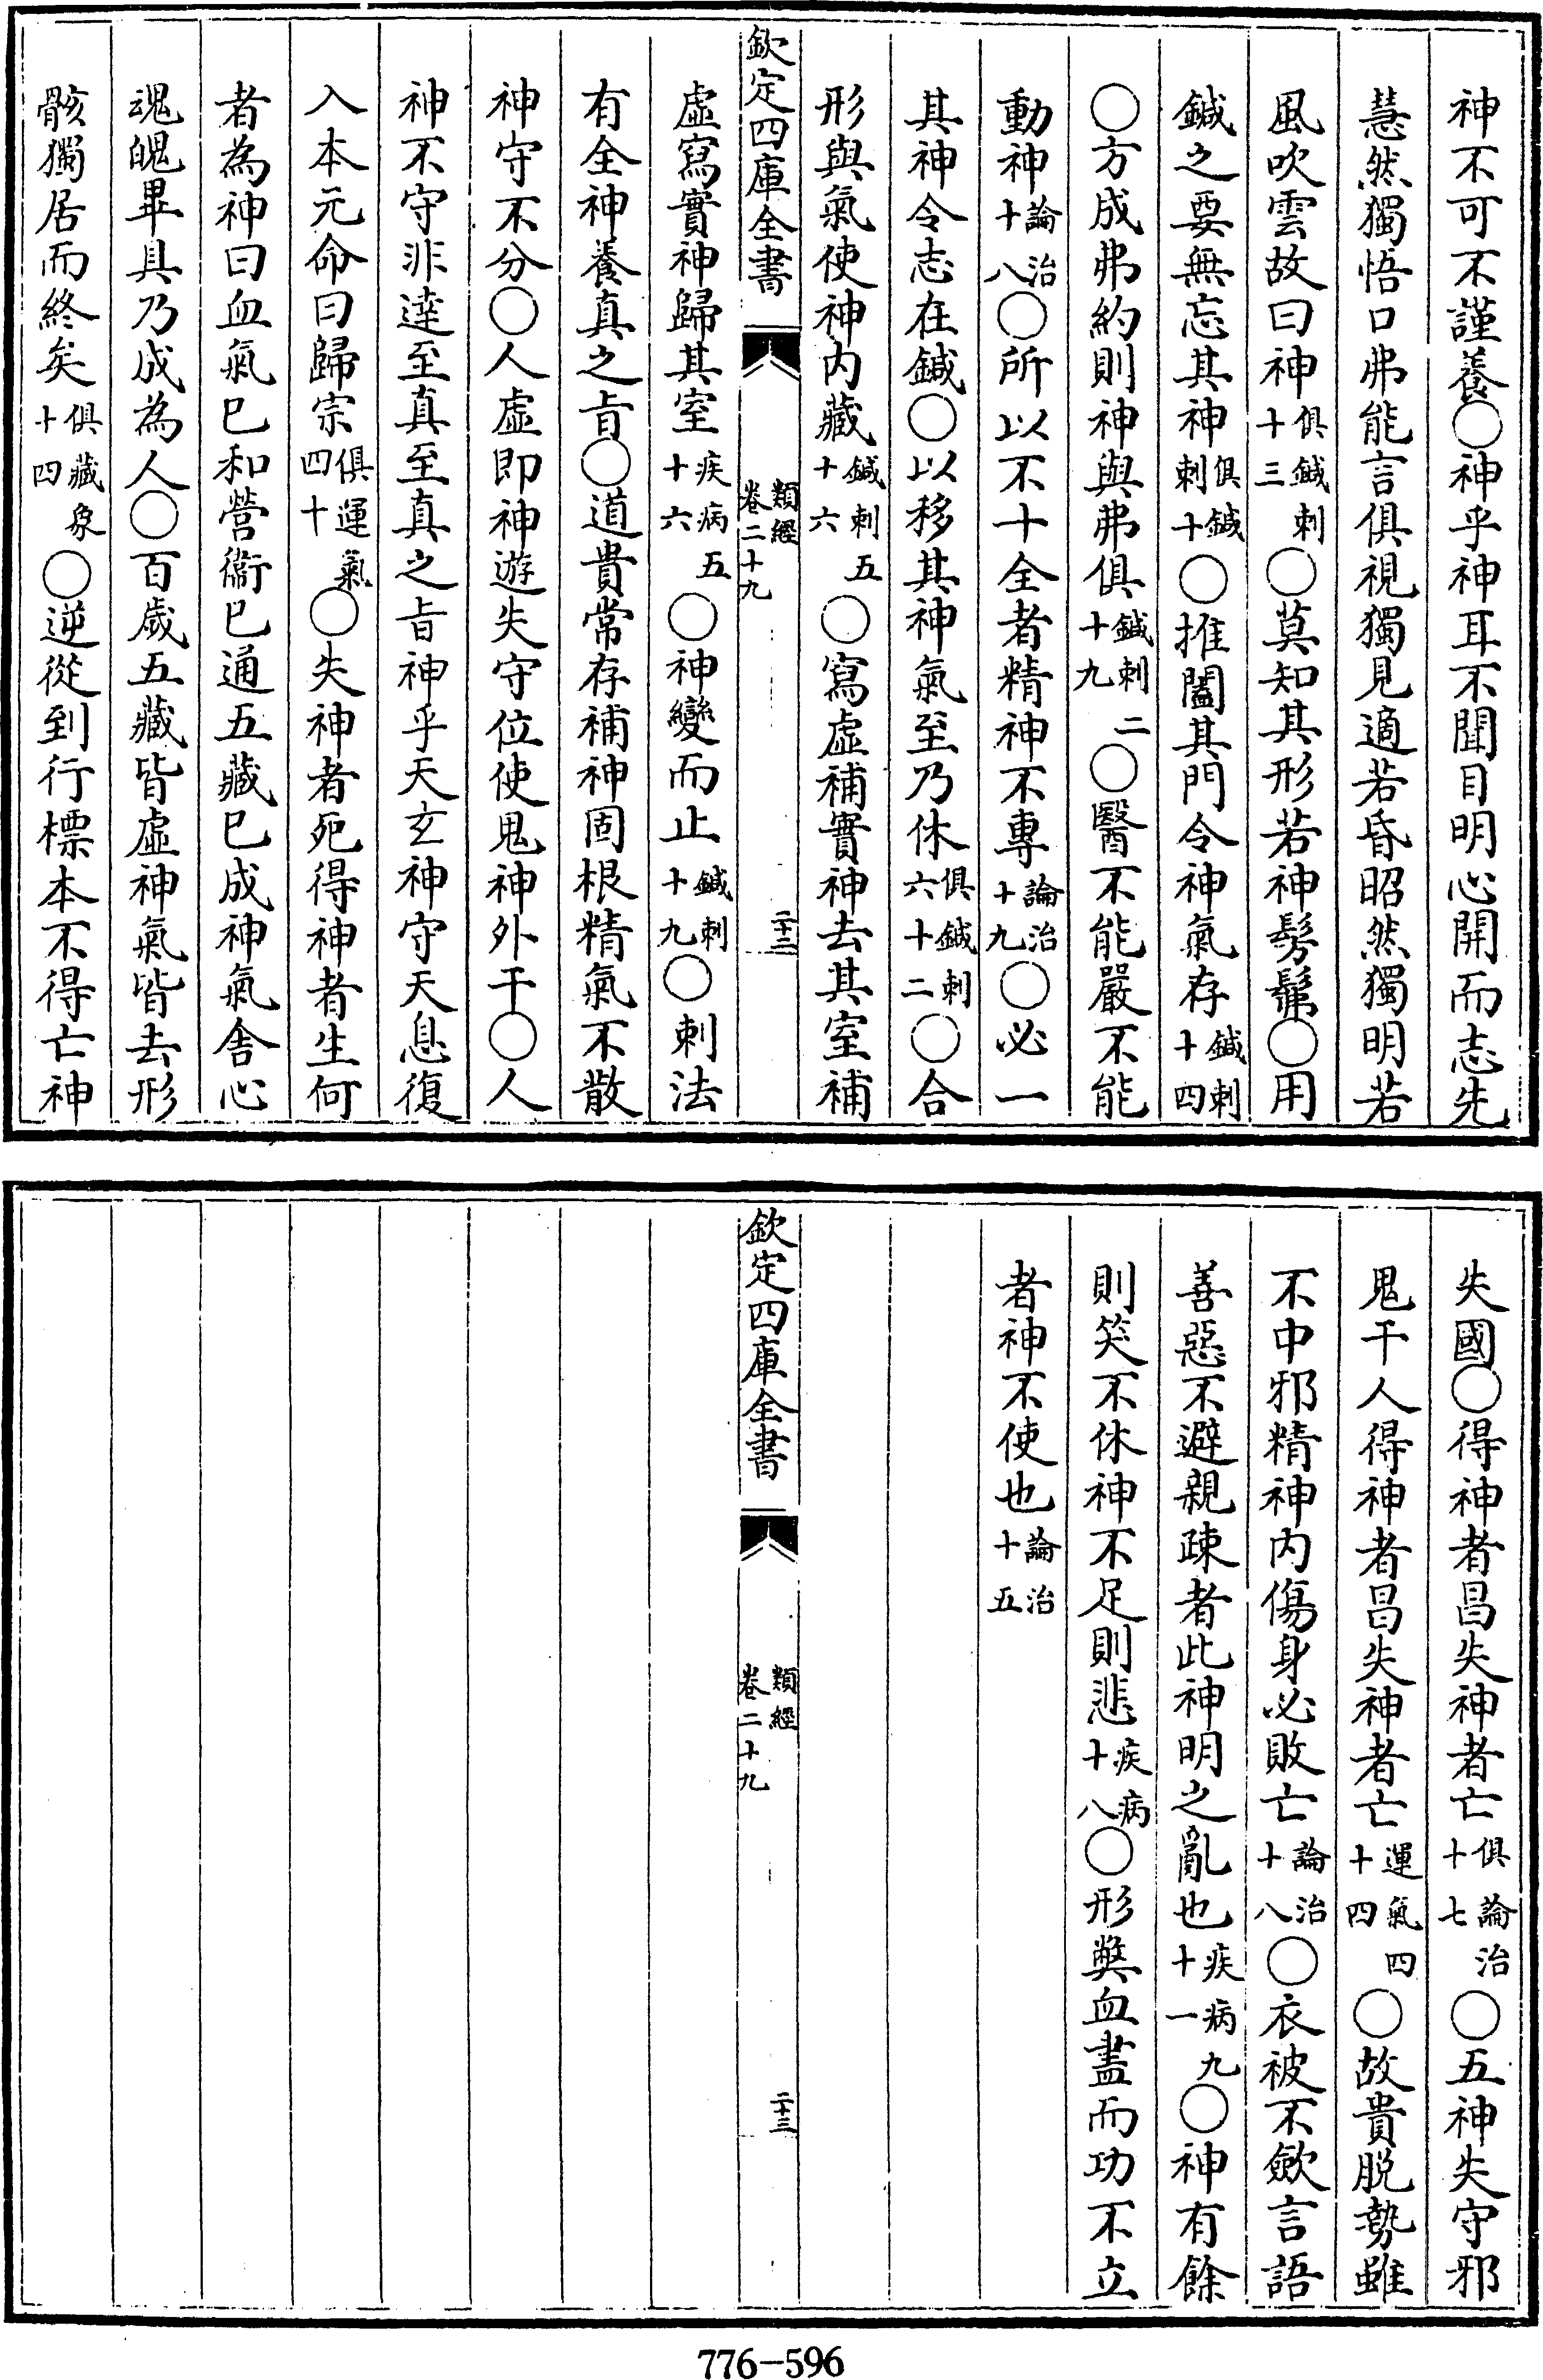 神不可不謹養○神乎神耳不聞目明心開而志先
慧然獨悟口弗能言俱視獨見適若昏昭然獨明若
風吹雲故曰神俱鍼刺十三○莫知其形若神髣髴○用
鍼之要無忘其神俱鍼刺十○推闔其門令神氣存鍼刺十四
○方成弗約則神與弗俱鍼刺二十九○醫不能嚴不能
動神論治十八○所以不十全者精神不專論治十九○必一
其神令志在鍼○以移其神氣至乃休俱鍼刺六十二○合
形與氣使神内藏鍼刺五十六○寫虛補實神去其室補
欽定四庫全書
類經
卷二十九
二十二
虛寫實神歸其室疾病五十六○神變而止鍼刺十九○刺法
有全神養真之㫖○道貴常存補神固根精氣不散
神守不分○人虛即神遊失守位使鬼神外干○人
神不守非達至真至真之㫖神乎天玄神守天息復
入本元命曰歸宗俱運氣四十○失神者死得神者生何
者為神曰血氣已和營衞已通五藏已成神氣舍心
魂魄畢具乃成為人○百歲五藏皆虛神氣皆去形
骸獨居而終矣俱藏象十四○逆從到行標本不得亡神
失國○得神者昌失神者亡俱論治十七○五神失守邪
鬼干人得神者昌失神者亡運氣四十四○故貴脱勢雖
不中邪精神内傷身必敗亡論治十八○衣被不歛言語
善惡不避親踈者此神明之亂也疾病九十一○神有餘
則笑不休神不足則悲疾病十八○形獘血盡而功不立
者神不使也論治十五
欽定四庫全書
類經
卷二十九
二十三
776-596